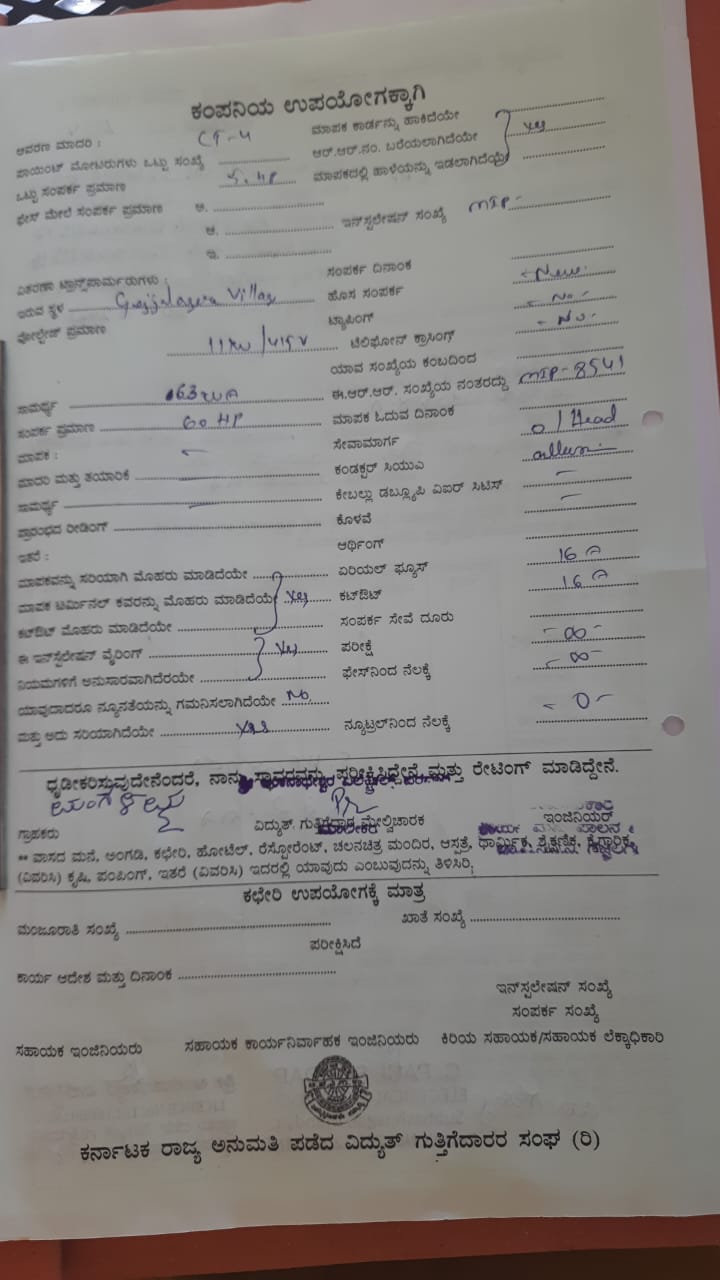 ಕಂಪನಿಯ ಉಪಯೋಗಕ್ಕಾಗಿ
ಆವರಣ ಮಾದರಿ : CT-4 ಮಾಪಕ ಕಾರ್ಡನ್ನು ಹಾಕಿದೆಯೇ
ಪಾಯಿಂಟ್ ಮೋಟರುಗಳು ಒಟ್ಟು ಸಂಖ್ಯೆ ಆರ್.ಆರ್.ನಂ. ಬರೆಯಲಾಗಿದೆಯೇ Yes
ಒಟ್ಟು ಸಂಪರ್ಕ ಪ್ರಮಾಣ 5. HP ಮಾಪಕದಲ್ಲಿ ಹಾಳೆಯನ್ನು ಇಡಲಾಗಿದೆಯೇ
ಫೇಸ್ ಮೇಲೆ ಸಂಪರ್ಕ ಪ್ರಮಾಣ ಅ.
ಆ. ಇನ್‌ಸ್ಟಲೇಷನ್ ಸಂಖ್ಯೆ MIP-
ಇ.
ವಿತರಣಾ ಟ್ರಾನ್ಸ್‌ಪಾರ್ಮರುಗಳು : ಸಂಪರ್ಕ ದಿನಾಂಕ
ಇರುವ ಸ್ಥಳ Village ಹೊಸ ಸಂಪರ್ಕ - New -
ವೋಲ್ಟೇಜ್ ಪ್ರಮಾಣ ಟ್ಯಾಪಿಂಗ್ - No -
11KV/415V ಟೆಲಿಫೋನ್ ಕ್ರಾಸಿಂಗ್ - No -
ಯಾವ ಸಂಖ್ಯೆಯ ಕಂಬದಿಂದ
ಸಾಮರ್ಥ್ಯ 63 KVA ಈ.ಆರ್.ಆರ್. ಸಂಖ್ಯೆಯ ನಂತರದ್ದು MIP-8541
ಸಂಪರ್ಕ ಪ್ರಮಾಣ 60 HP ಮಾಪಕ ಓದುವ ದಿನಾಂಕ
ಮಾಪಕ : - ಸೇವಾಮಾರ್ಗ O/Head
ಮಾದರಿ ಮತ್ತು ತಯಾರಿಕೆ ಕಂಡಕ್ಟರ್ ಸಿಯುವಿ
ಸಾಮರ್ಥ್ಯ ಕೇಬಲ್ಲು ಡಬ್ಲ್ಯೂಪಿ ವಿಐರ್ ಸಿಟಿಸ್ -
ಪ್ರಾರಂಭದ ರೀಡಿಂಗ್ ಕೊಳವೆ -
ಇತರೆ : ಆರ್ಥಿಂಗ್
ಮಾಪಕವನ್ನು ಸರಿಯಾಗಿ ಮೊಹರು ಮಾಡಿದೆಯೇ ಏರಿಯಲ್ ಫ್ಯೂಸ್ 16 A
ಮಾಪಕ ಟರ್ಮಿನಲ್ ಕವರನ್ನು ಮೊಹರು ಮಾಡಿದೆಯೇ Yes ಕಟ್‌ಔಟ್ 16 A
ಕಟ್‌ಔಟ್ ಮೊಹರು ಮಾಡಿದೆಯೇ ಸಂಪರ್ಕ ಸೇವೆ ದೂರು
ಈ ಇನ್‌ಸ್ಟಲೇಷನ್ ವೈರಿಂಗ್ Yes ಪರೀಕ್ಷೆ - ∞ -
ನಿಯಮಗಳಿಗೆ ಅನುಸಾರವಾಗಿದೆರಯೇ ಫೇಸ್‌ನಿಂದ ನೆಲಕ್ಕೆ - ∞ -
ಯಾವುದಾದರೂ ನ್ಯೂನತೆಯನ್ನು ಗಮನಿಸಲಾಗಿದೆಯೇ No
ಮತ್ತು ಅದು ಸರಿಯಾಗಿದೆಯೇ Yes ನ್ಯೂಟ್ರಲ್‌ನಿಂದ ನೆಲಕ್ಕೆ - 0 -
ಧೃಡೀಕರಿಸುವುದೇನೆಂದರೆ, ನಾನು ಸ್ಥಾವರವನ್ನು ಪರೀಕ್ಷಿಸಿದ್ದೇನೆ ಮತ್ತು ರೇಟಿಂಗ್ ಮಾಡಿದ್ದೇನೆ.
ಗ್ರಾಹಕರು ವಿದ್ಯುತ್ ಗುತ್ತಿಗೆದಾರ ಮೇಲ್ವಿಚಾರಕ ಇಂಜಿನಿಯರ್
** ವಾಸದ ಮನೆ, ಅಂಗಡಿ, ಕಛೇರಿ, ಹೋಟೆಲ್, ರೆಸ್ಟೋರೆಂಟ್, ಚಲನಚಿತ್ರ ಮಂದಿರ, ಆಸ್ಪತ್ರೆ, ಧಾರ್ಮಿಕ, ಶೈಕ್ಷಣಿಕ, ಕೈಗಾರಿಕೆ,
(ವಿವರಿಸಿ) ಕೃಷಿ, ಪಂಪಿಂಗ್, ಇತರೆ (ವಿವರಿಸಿ) ಇದರಲ್ಲಿ ಯಾವುದು ಎಂಬುವುದನ್ನು ತಿಳಿಸಿರಿ;
ಕಛೇರಿ ಉಪಯೋಗಕ್ಕೆ ಮಾತ್ರ
ಮಂಜೂರಾತಿ ಸಂಖ್ಯೆ ಖಾತೆ ಸಂಖ್ಯೆ
ಪರೀಕ್ಷಿಸಿದೆ
ಕಾರ್ಯ ಆದೇಶ ಮತ್ತು ದಿನಾಂಕ
ಇನ್‌ಸ್ಟಲೇಷನ್ ಸಂಖ್ಯೆ
ಸಂಪರ್ಕ ಸಂಖ್ಯೆ
ಸಹಾಯಕ ಇಂಜಿನಿಯರು ಸಹಾಯಕ ಕಾರ್ಯನಿರ್ವಾಹಕ ಇಂಜಿನಿಯರು ಕಿರಿಯ ಸಹಾಯಕ/ಸಹಾಯಕ ಲೆಕ್ಕಾಧಿಕಾರಿ
ಕರ್ನಾಟಕ ರಾಜ್ಯ ಅನುಮತಿ ಪಡೆದ ವಿದ್ಯುತ್ ಗುತ್ತಿಗೆದಾರರ ಸಂಘ (ರಿ)